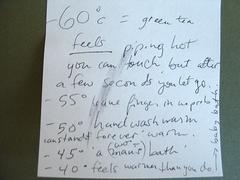 - 60°C = green tea
feels piping hot
you can touch but after
a few seconds you let go.
- 55° same finger in w/ prob
- 50° hand wash warm
can stand forever "warm.
- 45° a (man's) hot bath
- 40° feels warmer than you do
baby bath